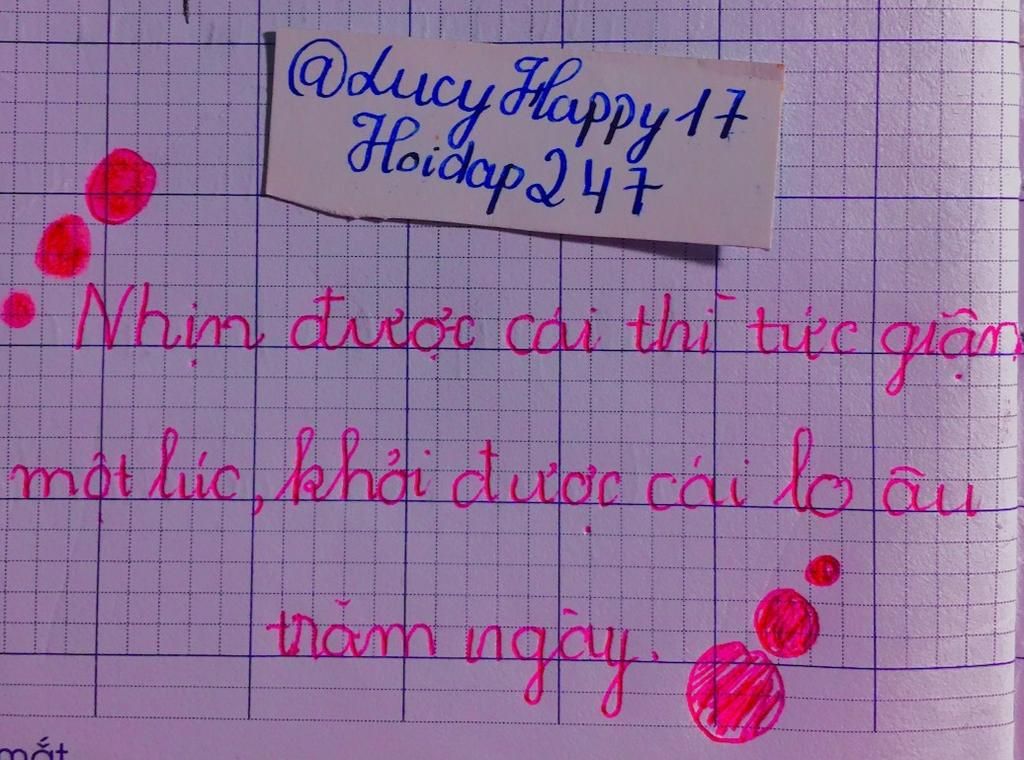 @LucyHappy17
Hoidap247
Nhịn được cái thì tức giận
một lúc, khỏi được cái lo âu
trăm ngày.
mắt